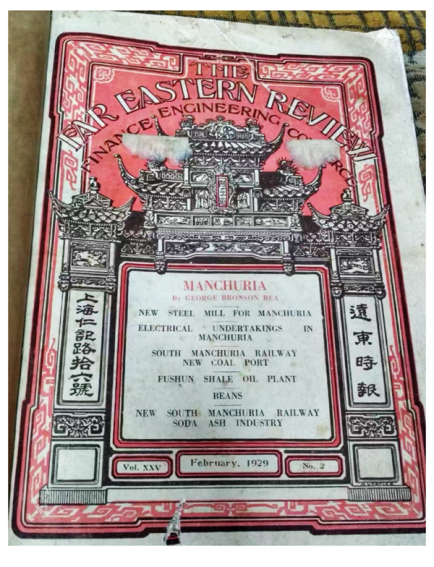 THE
FAR EASTERN REVIEW
FINANCE, ENGINEERING, COMMERCE
MANCHURIA
By GEORGE BRONSON REA
NEW STEEL MILL FOR MANCHURIA
ELECTRICAL UNDERTAKINGS IN
MANCHURIA
SOUTH MANCHURIA RAILWAY
NEW COAL PORT
FUSHUN SHALE OIL PLANT
BEANS
NEW SOUTH MANCHURIA RAILWAY
SODA ASH INDUSTRY
上海仁記路拾六號
遠東時報
Vol. XXV
February, 1929
No. 2